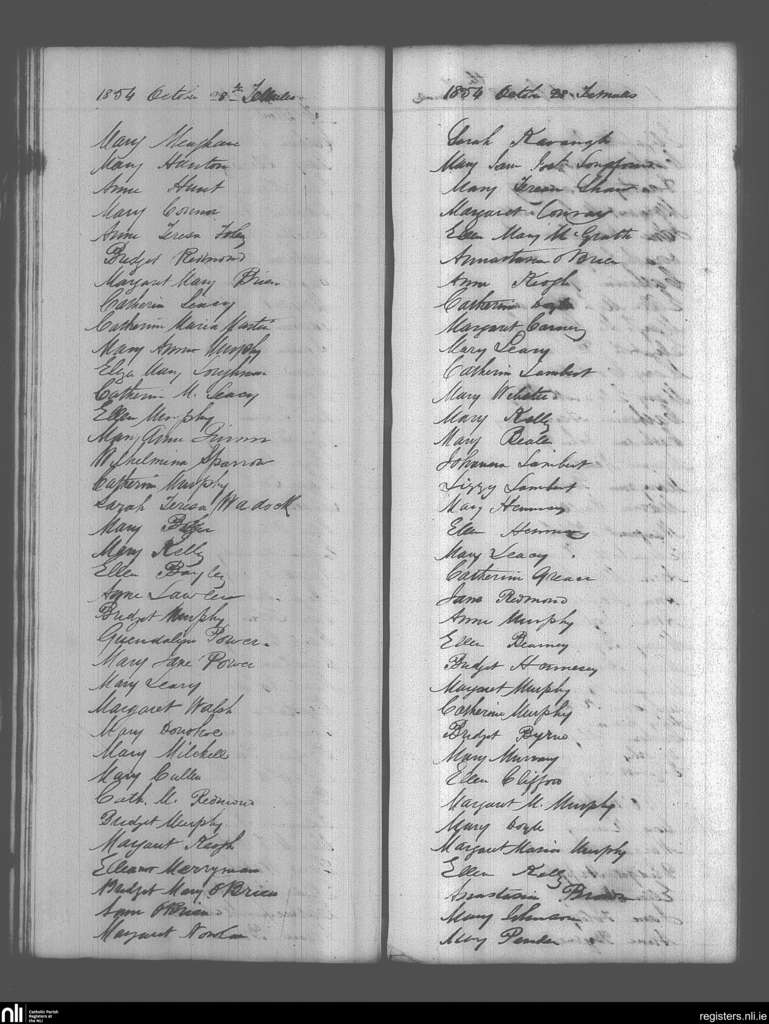 1854 Octobr 28th Females
Mary Meaghan
Mary
Anne Hunt
Mary Connor
Anne Teresa Foley
Bridget Redmond
Margaret Mary Brien
Catherin Leary
Catherine Maria Master
Mary Anne Murphy
Eliza Mary
Catherin M. Leacy
Ellen Murphy
Mary Anne
Wilhelmina Sparrow
Catherin Murphy
Sarah Teresa Wadock
Mary
Mary Kelly
Ellen Bayley
Anne Lawler
Bridget Murphy
Guendalyn Power
Mary Jane Power
Mary Leary
Margaret Walsh
Mary Donohoe
Mary Mitchell
Mary Cullen
Cath. M. Redmond
Bridget Murphy
Margaret Keogh
Elleanor Merryman
Bridget Mary O'Brien
Anne O'Brien
Margaret Nowlan
1854 Octobr 28 Females
Sarah Kavanagh
Mary Jane
Mary Teresa Shaw
Margaret Conway
Ellen Mary McGrath
Annastasia O'Brien
Anne Keogh
Catherine Doyle
Margaret Carney
Mary Leary
Catherin Lambert
Mary Webster
Mary Kelly
Mary Beale
Johanna Lambert
Lizzy Lambert
Mary Hennessy
Ellen Hennessy
Mary Leacy
Catherin Greace
Jane Redmond
Anne Murphy
Ellen Bearney
Bridget Hennessy
Margaret Murphy
Catherine Murphy
Bridget Byrne
Mary Murray
Ellen Clifford
Margaret M. Murphy
Mary Doyle
Margaret Maria Murphy
Ellen Kelly
Anastasia Brown
Mary
Mary Pender
nli
Catholic Parish
Registers at
the NLI
registers.nli.ie